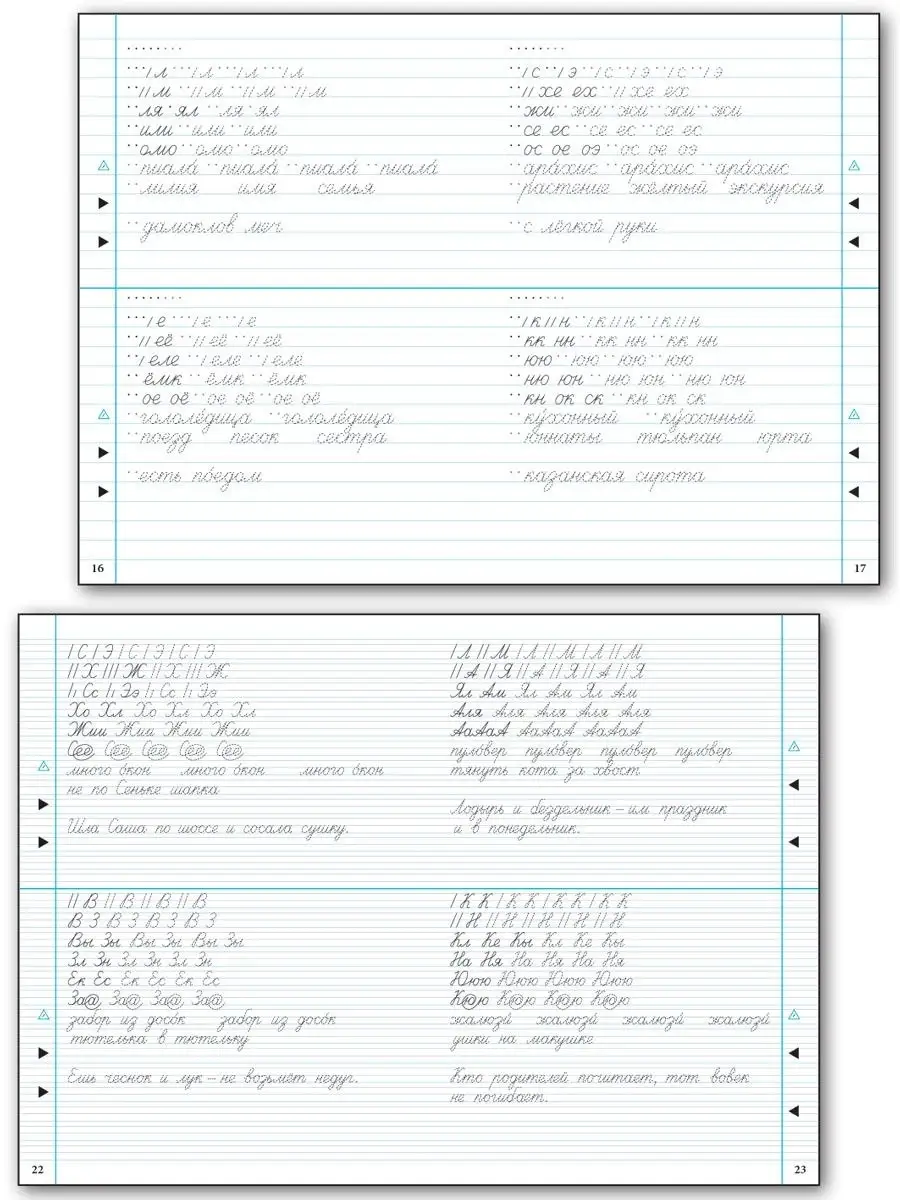 ı л ı л ı л ı л
ıı м ıı м ıı м ıı м
ля ял ля ял
или или или
омо омо омо
пиала́ пиала́ пиала́ пиала́
лилия имя семья
дамоклов меч
ı с ı э ı с ı э ı с ı э
ıı хе ех ıı хе ех
жи жи жи жи жи
се ес се ес се ес
ос ое оэ ос ое оэ
ара́хис ара́хис ара́хис
растение жёлтый экскурсия
с лёгкой руки
ı е ı е ı е
ıı её ıı её ıı её
ı еле ı еле ı еле
ёмк ёмк ёмк
ое оё ое оё ое оё
гололе́дица гололе́дица
поезд песок сестра
есть по́едом
ı к ıı н ı к ıı н ı к ıı н
кк нн кк нн кк нн
юю юю юю юю
ню юн ню юн ню юн
кн ок ск кн ок ск
ку́хонный ку́хонный
юннаты тюльпан юрта
казанская сирота
16
17
| С | Э | С | Э | С | Э
|| Х ||| Ж || Х ||| Ж
Сс Ээ Сс Ээ
Хо Хл Хо Хл Хо Хл
Жии Жии Жии Жии
много о́кон много о́кон много о́кон
не по Сеньке шапка
Шла Саша по шоссе и сосала сушку.
| Л || М | Л || М | Л || М
|| А || Я || А || Я || А || Я
Ял Ам Ял Ам Ял Ам
Аля Аля Аля Аля Аля
АаАаА АаАаА АаАаА
пуло́вер пуло́вер пуло́вер пуло́вер
тянуть кота за хвост
Лодырь и бездельник – им праздник
и в понедельник.
|| В || В || В || В
В З В З В З В З
Вы Зы Вы Зы Вы Зы
Зл Зн Зл Зн Зл Зн
Ек Ес Ек Ес Ек Ес
За@, За@, За@, За@,
забо́р из досо́к забо́р из досо́к
тютелька в тютельку
Ешь чеснок и лук – не возьмёт недуг.
| К К | К К | К К | К К
|| Н || Н || Н || Н || Н
Кл Ке Кы Кл Ке Кы
На Ня На Ня На Ня
Ююю Ююю Ююю Ююю
жалюзи́ жалюзи́ жалюзи́ жалюзи́
ушки на макушке
Кто родителей почитает, тот вовек
не погибает.
22
23